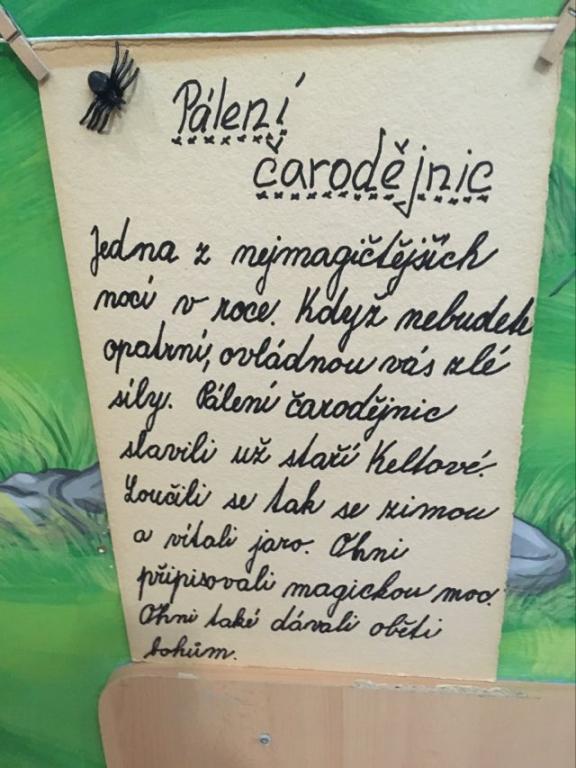 Pálení
čarodějnic
Jedna z nejmagičtějších
nocí v roce. Když nebudete
opatrní, ovládnou vás zlé
síly. Pálení čarodějnic
slavili už staří Keltové.
Loučili se tak se zimou
a vítali jaro. Ohni
připisovali magickou moc.
Ohni také dávali oběti
bohům.